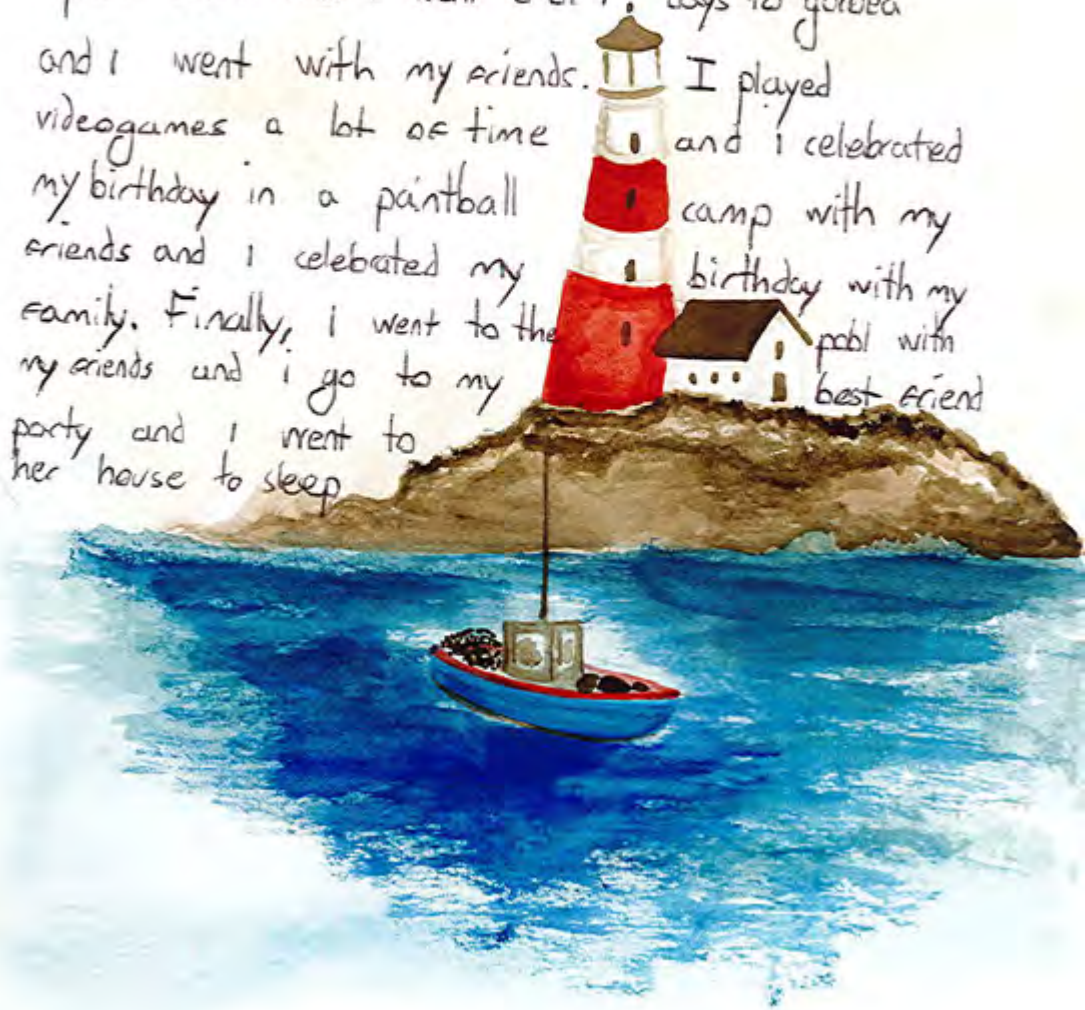 days to
and i went with my friends. I played
videogames a lot of time and i celebrated
my birthday in a paintball camp with my
friends and i celebrated my birthday with my
family. Finally, i went to the pobl with
my friends and i go to my best friend
party and i went to
her house to sleep